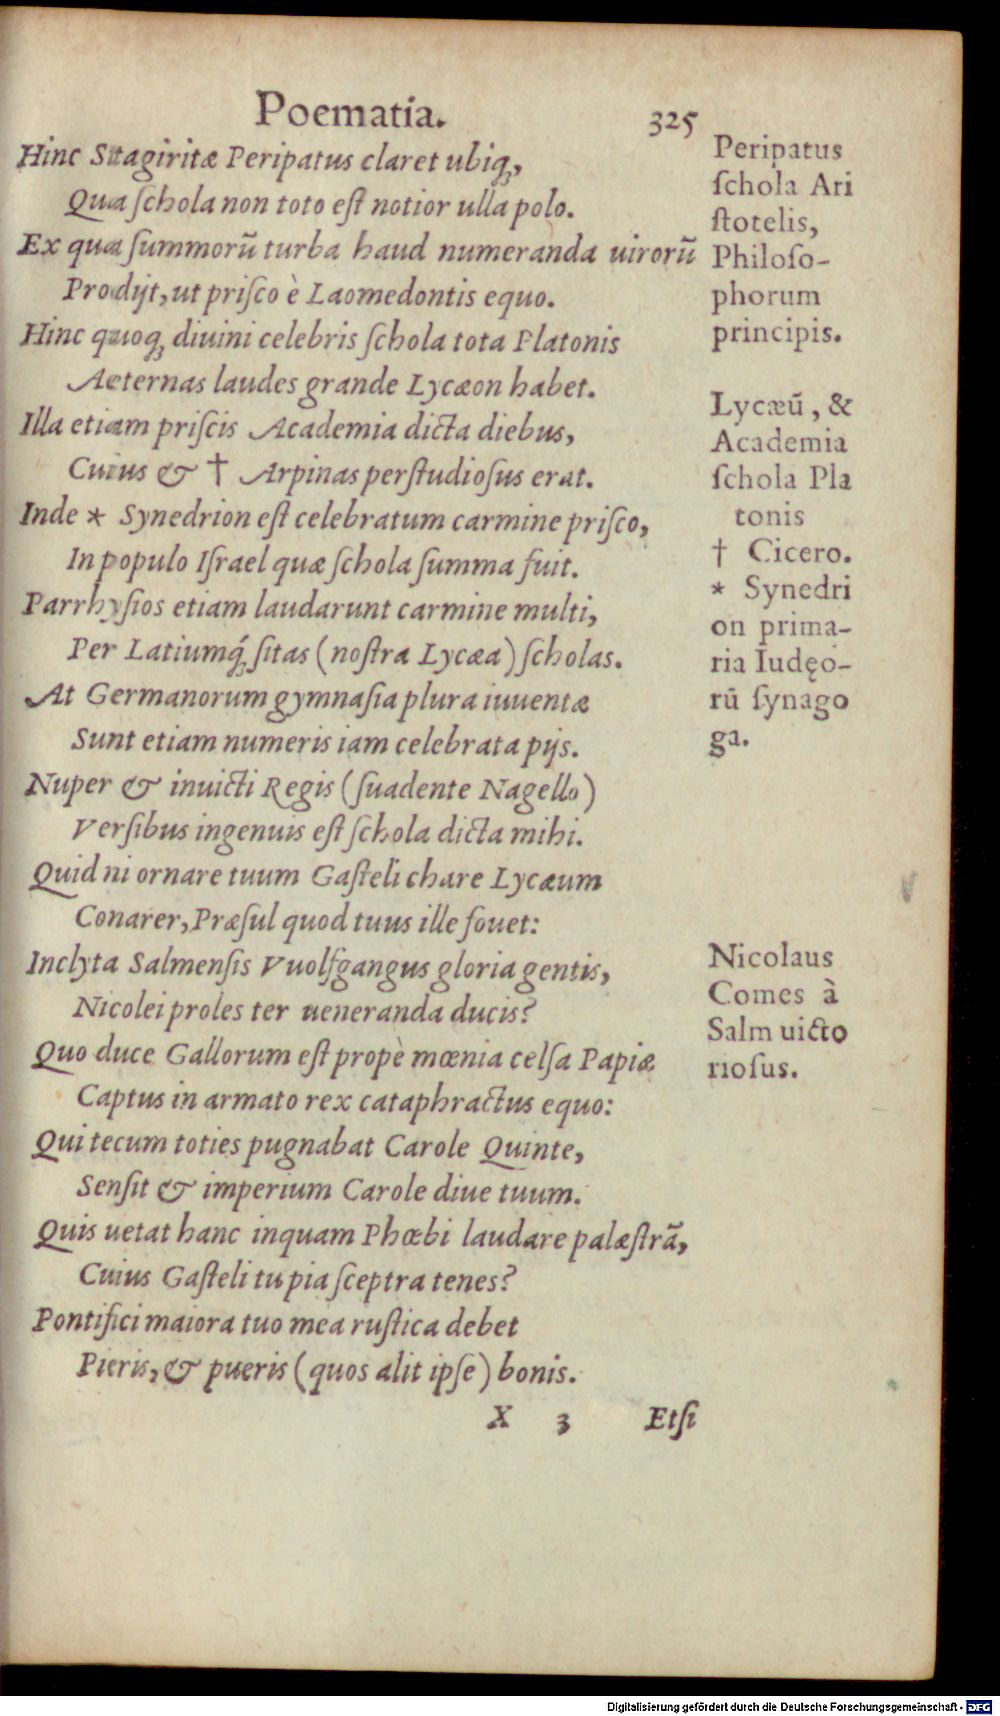 Poematia. 325
Hinc Stagiritæ Peripatus claret ubiq́ꝫ,
Qua ſchola non toto eſt notior ulla polo.
Ex qua ſummorũ turba haud numeranda uirorũ
Prodijt, ut priſco è Laomedontis equo.
Hinc quoqꝫ diuini celebris ſchola tota Platonis
Aeternas laudes grande Lycæon habet.
Illa etiam priſcis Academia dicta diebus,
Cuius & † Arpinas perſtudioſus erat.
Inde * Synedrion eſt celebratum carmine priſco,
In populo Iſrael quæ ſchola ſumma fuit.
Parrhyſios etiam laudarunt carmine multi,
Per Latiumq́ꝫ ſitas (noſtra Lycæa) ſcholas.
At Germanorum gymnaſia plura iuuentæ
Sunt etiam numeris iam celebrata pijs.
Nuper & inuicti Regis (ſuadente Nagello)
Verſibus ingenuis eſt ſchola dicta mihi.
Quid ni ornare tuum Gaſteli chare Lycæum
Conarer, Præſul quod tuus ille fouet:
Inclyta Salmenſis Vuolfgangus gloria gentis,
Nicolei proles ter ueneranda ducis?
Quo duce Gallorum eſt propè mœnia celſa Papiæ
Captus in armato rex cataphractus equo:
Qui tecum toties pugnabat Carole Quinte,
Senſit & imperium Carole diue tuum.
Quis uetat hanc inquam Phœbi laudare palæſtrã,
Cuius Gaſteli tu pia ſceptra tenes?
Pontifici maiora tuo mea ruſtica debet
Pieris, & pueris (quos alit ipſe) bonis.
X 3 Etſi
Peripatus
ſchola Ari
ſtotelis,
Philoſo-
phorum
principis.
Lycæũ, &
Academia
ſchola Pla
tonis
† Cicero.
* Synedri
on prima-
ria Iudęo-
rũ ſynago
ga.
Nicolaus
Comes à
Salm uicto
rioſus.
Digitalisierung gefördert durch die Deutsche Forschungsgemeinschaft - DFG